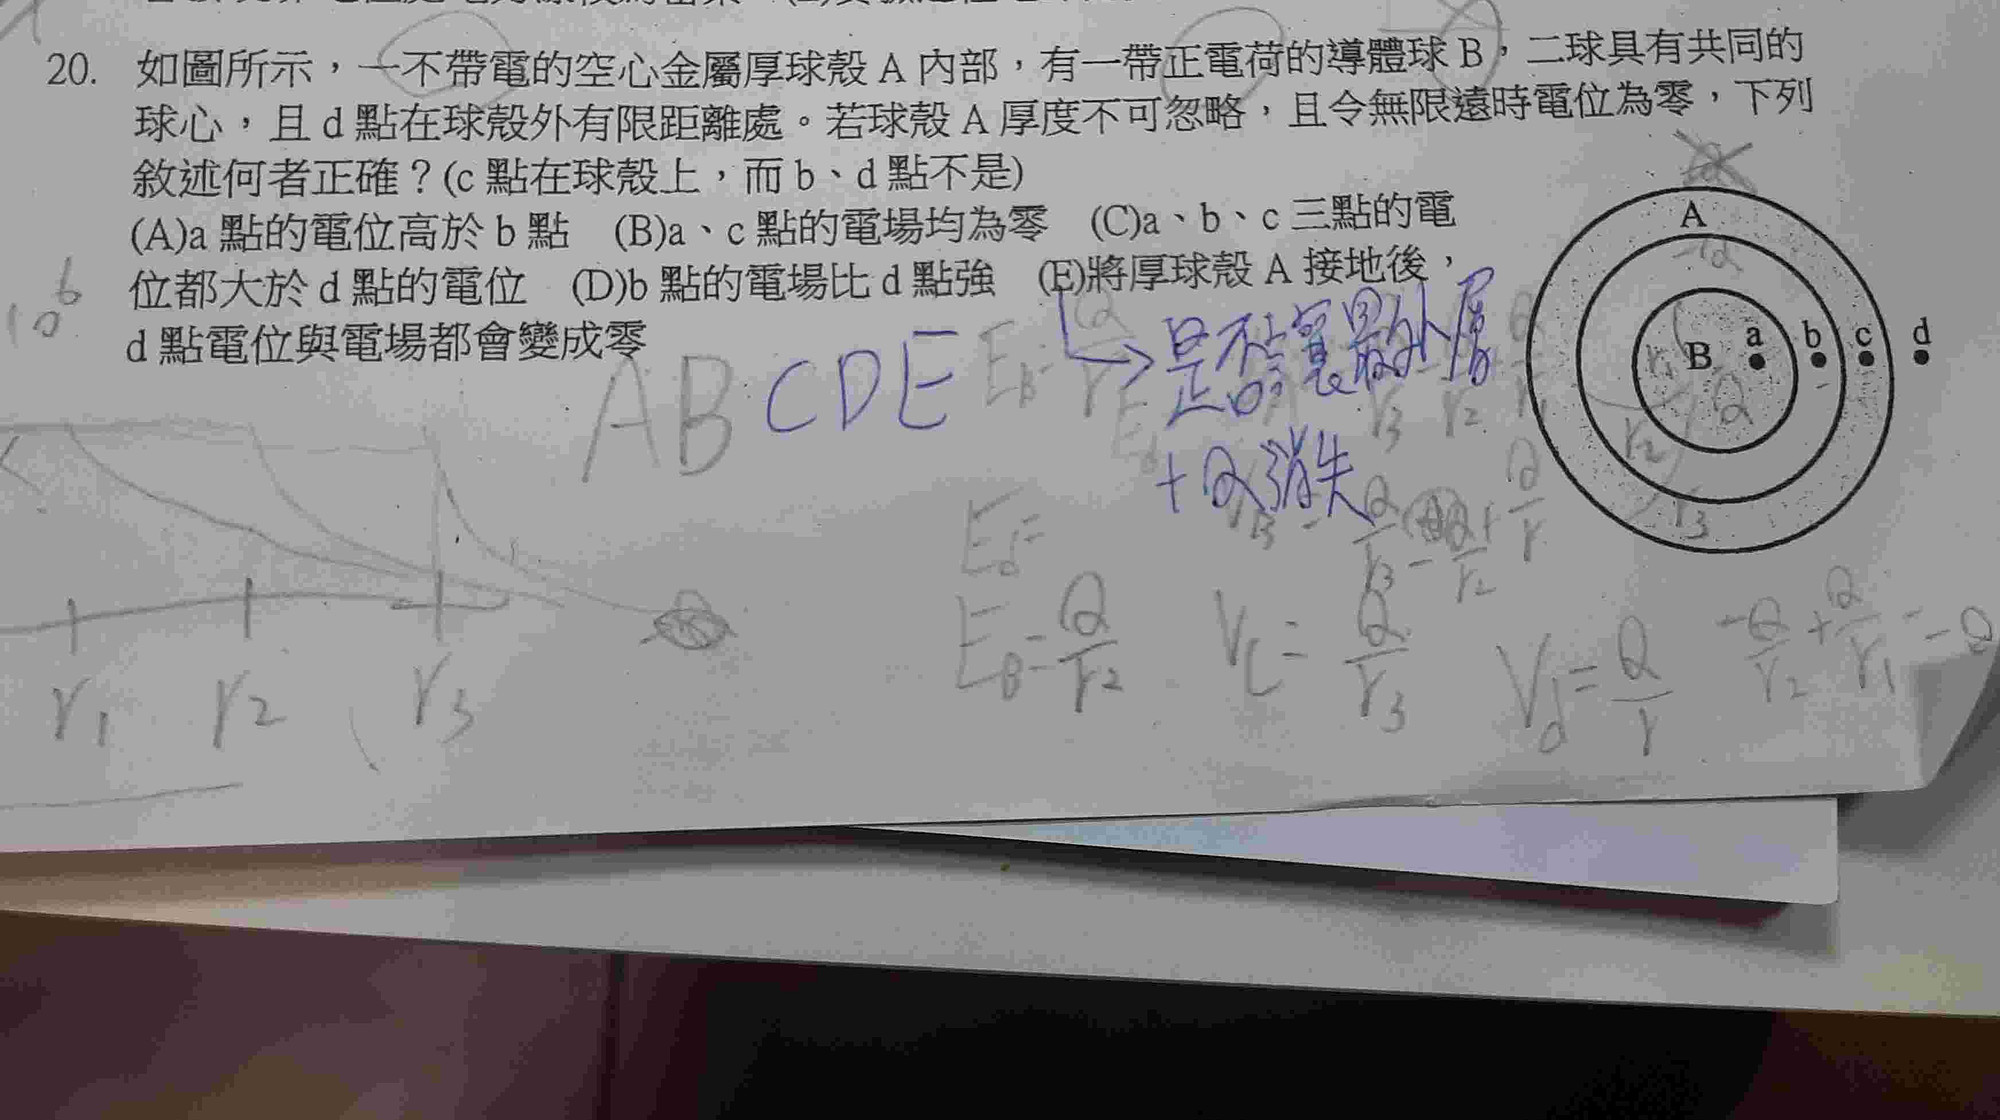 20. 如圖所示，一不帶電的空心金屬厚球殼 A 內部，有一帶正電荷的導體球 B，二球具有共同的
球心，且 d 點在球殼外有限距離處。若球殼 A 厚度不可忽略，且令無限遠時電位為零，下列
敘述何者正確？(c 點在球殼上，而 b、d 點不是)
(A)a 點的電位高於 b 點 (B)a、c 點的電場均為零 (C)a、b、c 三點的電
位都大於 d 點的電位 (D)b 點的電場比 d 點強 (E)將厚球殼 A 接地後，
d 點電位與電場都會變成零
A
B a b c d
ABCDE
最外層
+Q消失
10^6
r1 r2 r3
Ed=
EB=Q/r2
Vc=Q/r3
Vd=Q/r